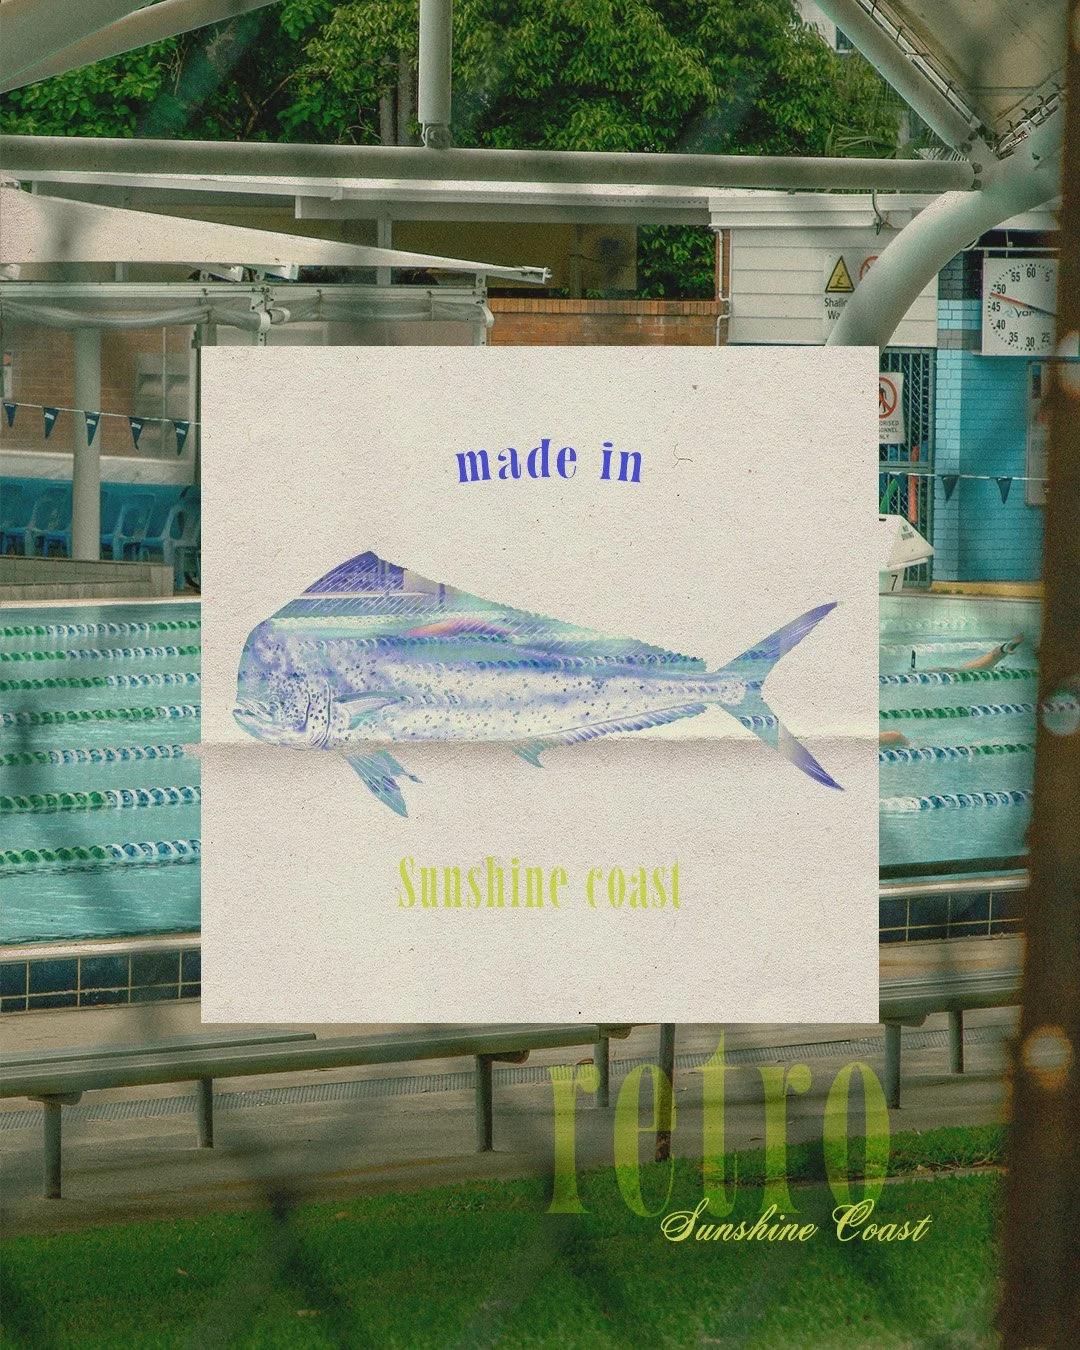 Shallo
Wa
55 60 5
50
45
40
35 30 25
made in
7
Sunshine coast
retro
Sunshine Coast